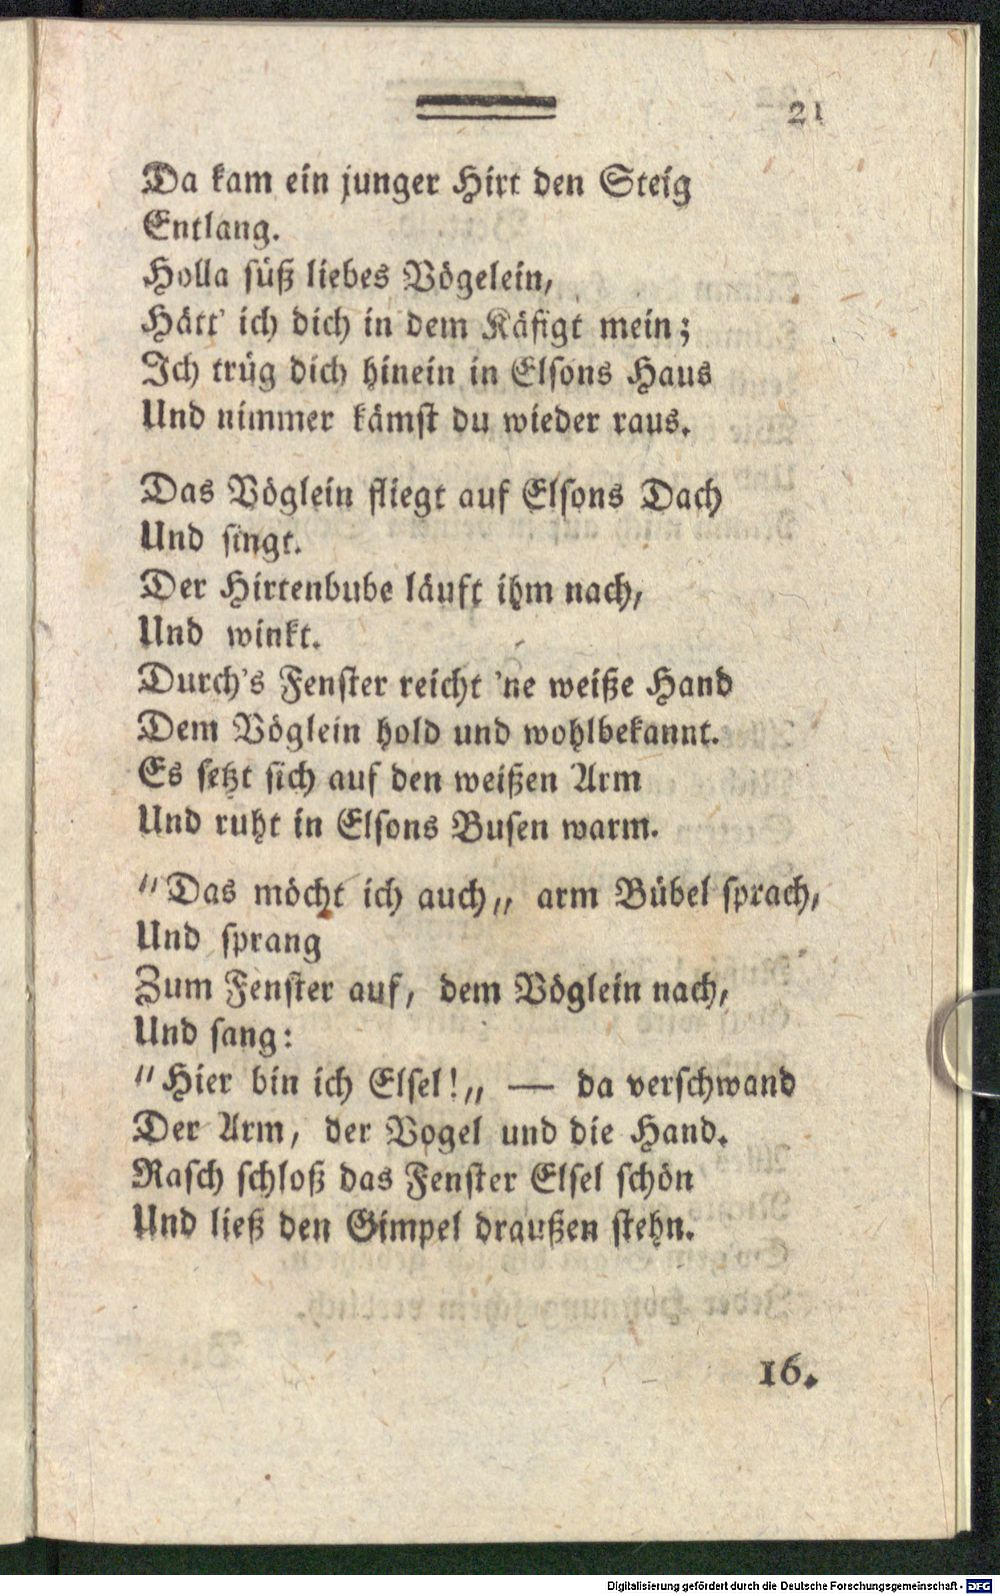 21
Da kam ein junger Hirt den Steig
Entlang.
Holla süß liebes Vögelein,
Hätt' ich dich in dem Käfigt mein;
Ich trüg dich hinein in Elsons Haus
Und nimmer kämst du wieder raus.
Das Vöglein fliegt auf Elsons Dach
Und singt.
Der Hirtenbube läuft ihm nach,
Und winkt.
Durch's Fenster reicht 'ne weiße Hand
Dem Vöglein hold und wohlbekannt.
Es setzt sich auf den weißen Arm
Und ruht in Elsons Busen warm.
"Das möcht ich auch„ arm Bübel sprach,
Und sprang
Zum Fenster auf, dem Vöglein nach,
Und sang:
"Hier bin ich Elsel!„ — da verschwand
Der Arm, der Vogel und die Hand.
Rasch schloß das Fenster Elsel schön
Und ließ den Gimpel draußen stehn.
16.
Digitalisierung gefördert durch die Deutsche Forschungsgemeinschaft - DFG